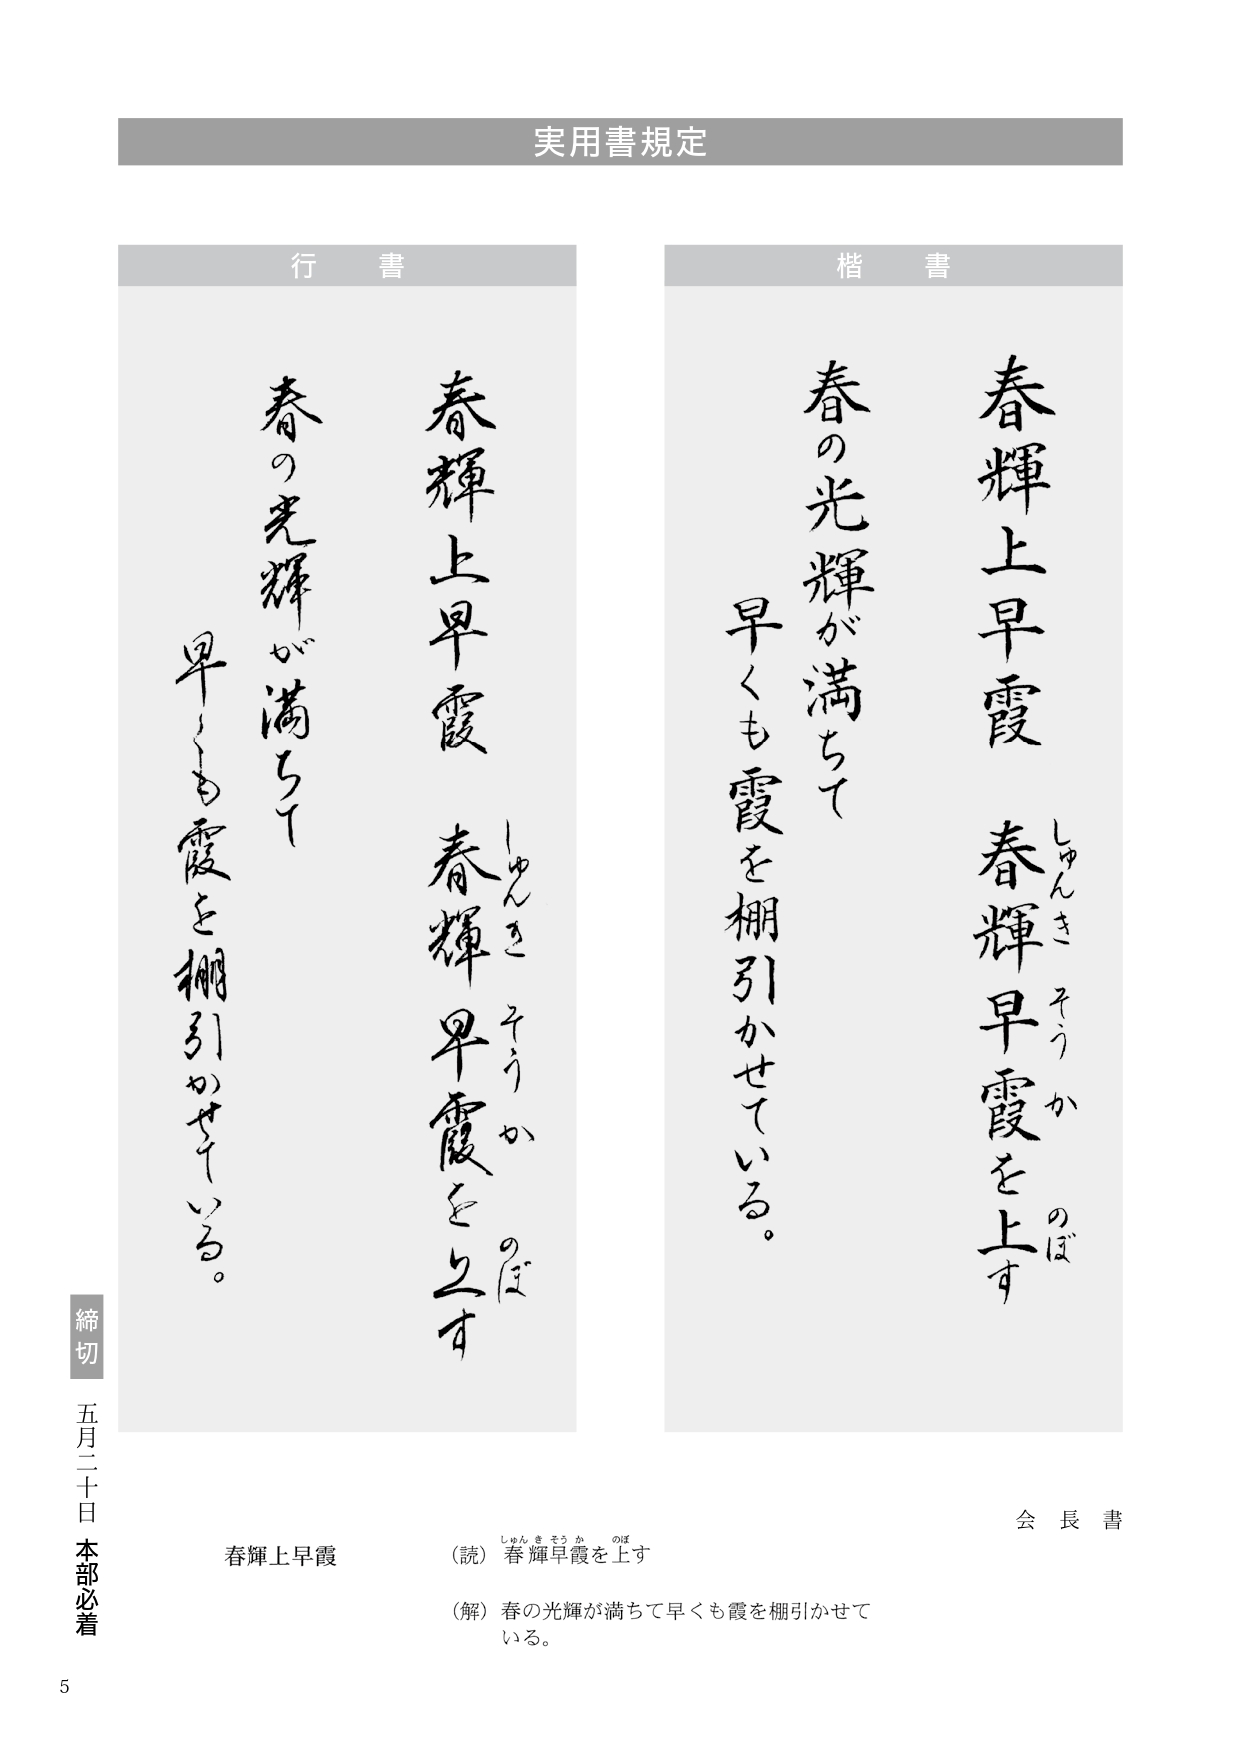 実用書規定
楷書
春輝上早霞　春輝早霞を上す
しゅんき　そうか　のぼ
春の光輝が満ちて
早くも霞を棚引かせている。
行書
春輝上早霞　春輝早霞を上す
しゅんき　そうか　のぼ
春の光輝が満ちて
早くも霞を棚引かせている。
会長書
春輝上早霞
（読）春輝早霞を上す
しゅんきそうか　のぼ
（解）春の光輝が満ちて早くも霞を棚引かせて
いる。
締切　五月二十日　本部必着
5